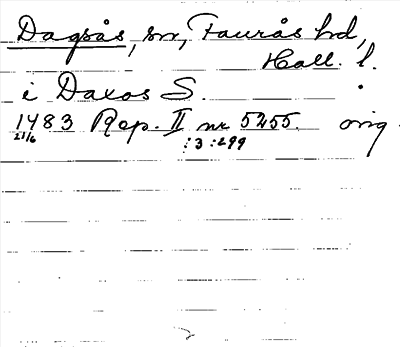 Dagsås, sn, Faurås hd,
Hall. l.
i Daxos S.
1483 Rep. II nr 5255. orig.
21/6 :3:299